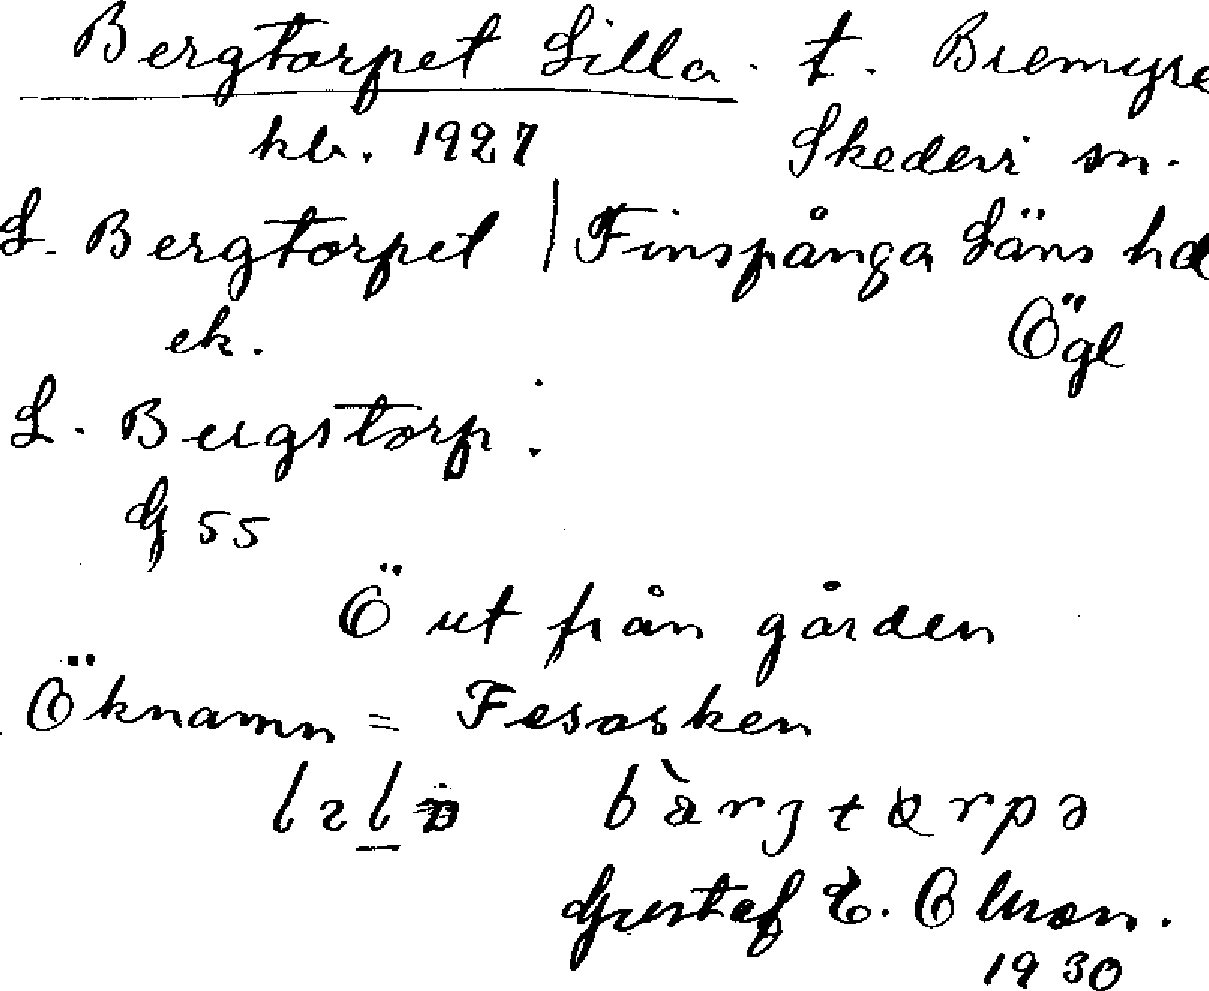 Bergtorpet Lilla. t. Bremyre
kb. 1927 Skedevi sn.
L. Bergtorpet | Finspånga Läns hd
ek. Ögl
L. Bergstorp:
G 55
Ö ut från gården
Öknamn = Fesasken
Gustaf E. Olsson.
1930